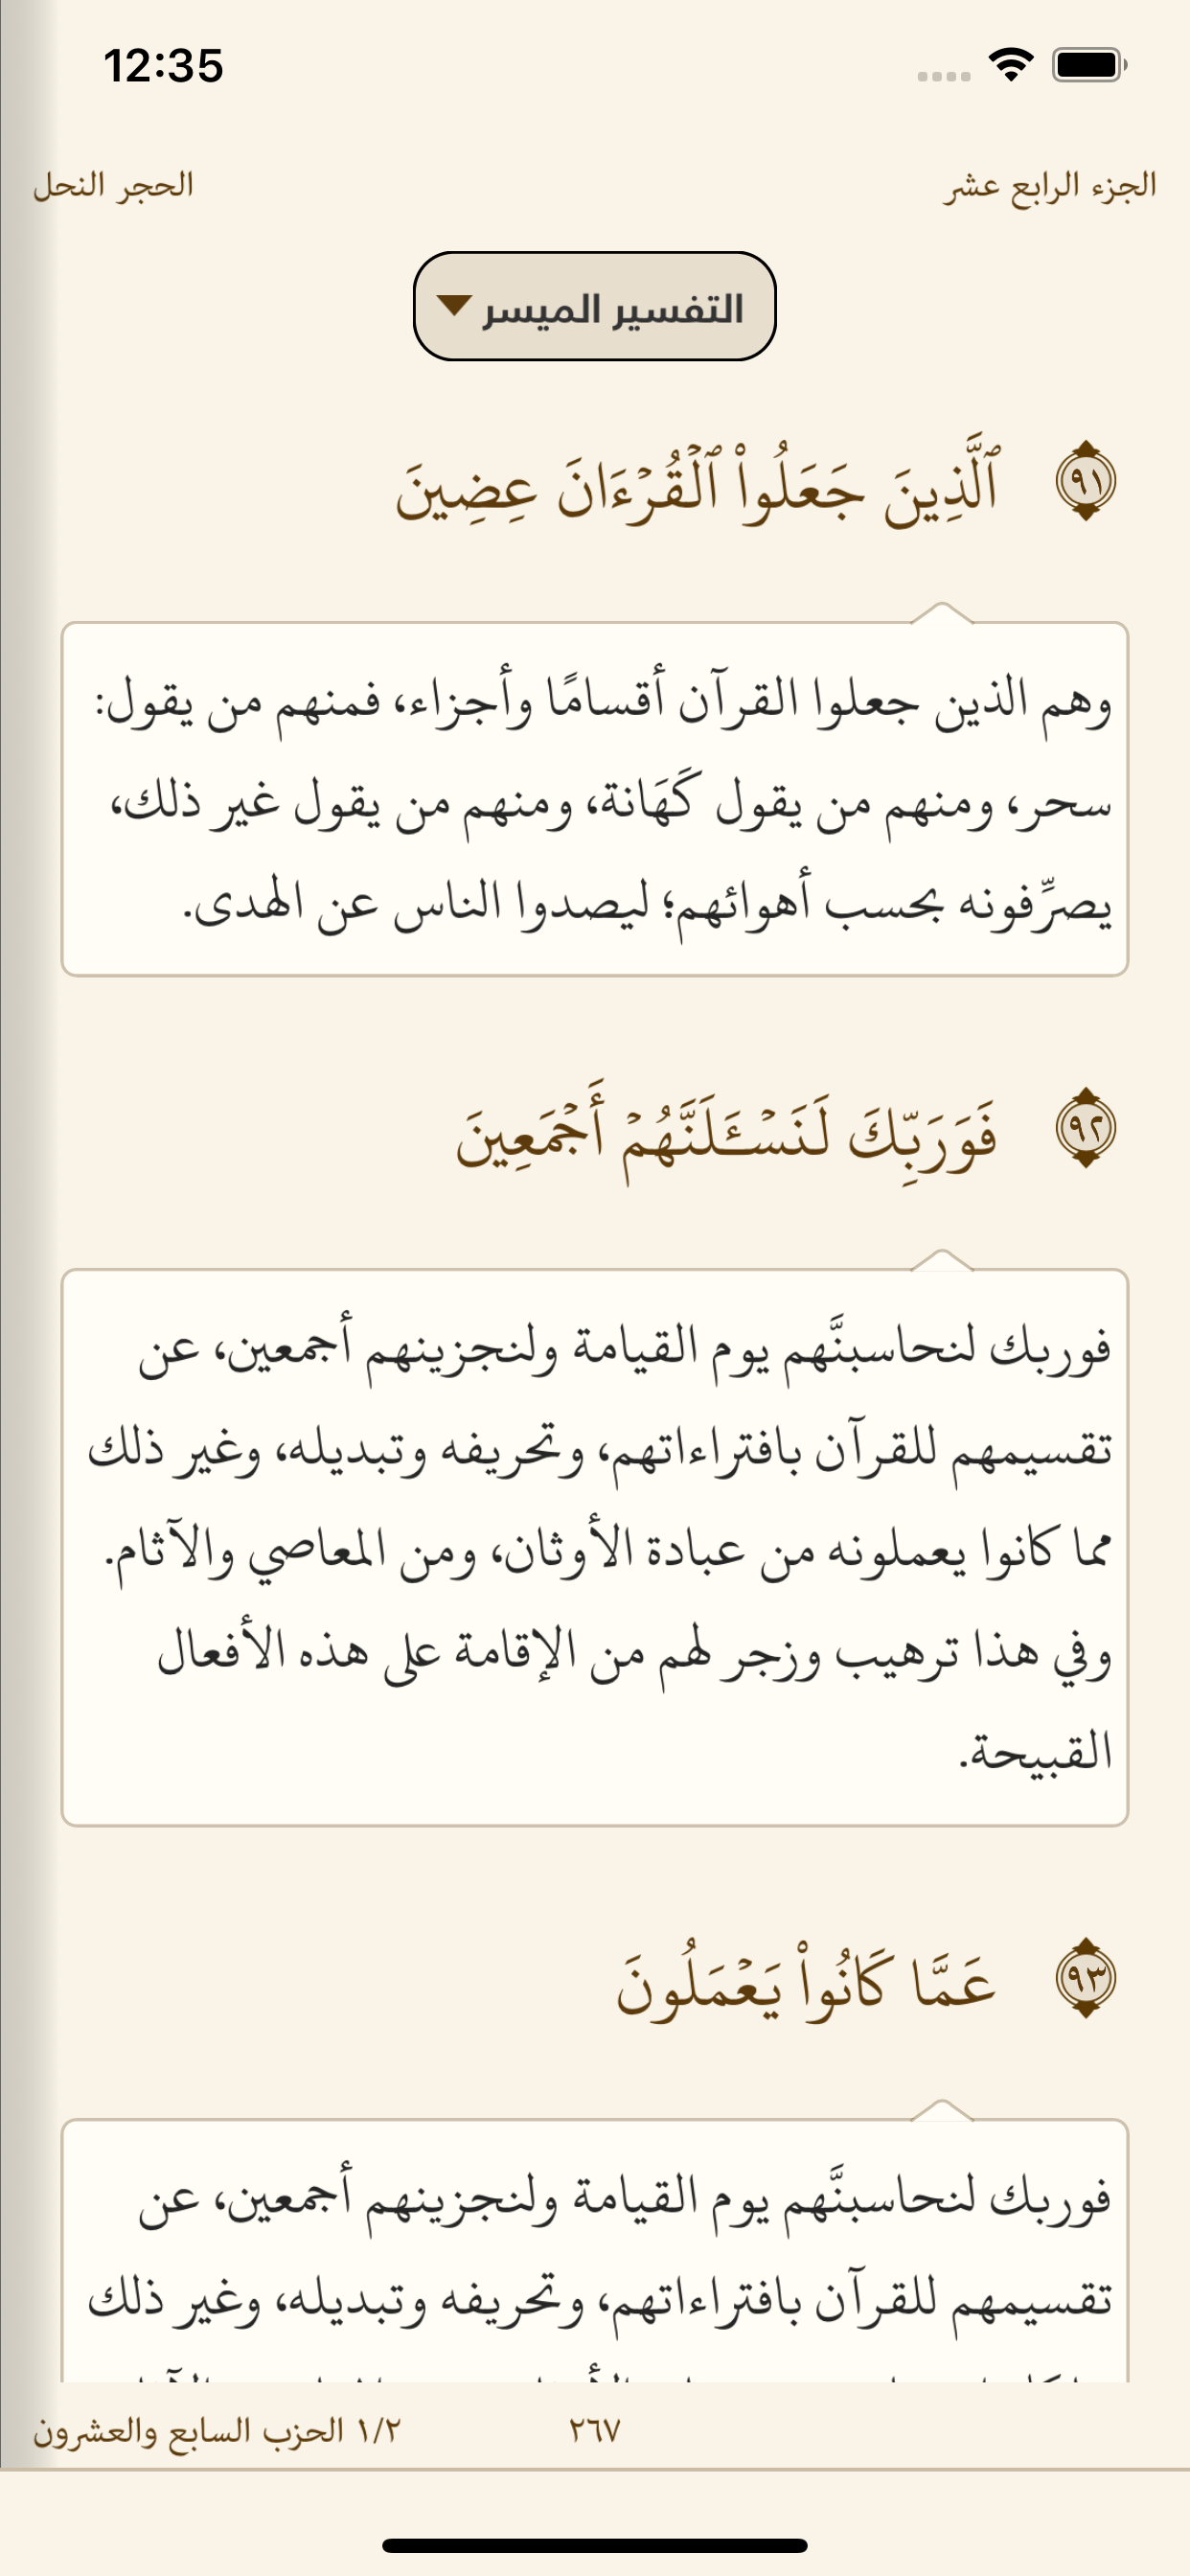 12:35
الجزء الرابع عشر
الحجر النحل
التفسير الميسر
٩١
ٱلَّذِينَ جَعَلُوا۟ ٱلْقُرْءَانَ عِضِينَ
وهم الذين جعلوا القرآن أقسامًا وأجزاء، فمنهم من يقول:
سحر، ومنهم من يقول كَهَانة، ومنهم من يقول غير ذلك،
يصرِّفونه بحسب أهوائهم؛ ليصدوا الناس عن الهدى.
٩٢
فَوَرَبِّكَ لَنَسْـَٔلَنَّهُمْ أَجْمَعِينَ
فوربك لنحاسبنَّهم يوم القيامة ولنجزينهم أجمعين، عن
تقسيمهم للقرآن بافتراءاتهم، وتحريفه وتبديله، وغير ذلك
مما كانوا يعملونه من عبادة الأوثان، ومن المعاصي والآثام.
وفي هذا ترهيب وزجر لهم من الإقامة على هذه الأفعال
القبيحة.
٩٣
عَمَّا كَانُوا۟ يَعْمَلُونَ
فوربك لنحاسبنَّهم يوم القيامة ولنجزينهم أجمعين، عن
تقسيمهم للقرآن بافتراءاتهم، وتحريفه وتبديله، وغير ذلك
٢٦٧
١/٢ الحزب السابع والعشرون